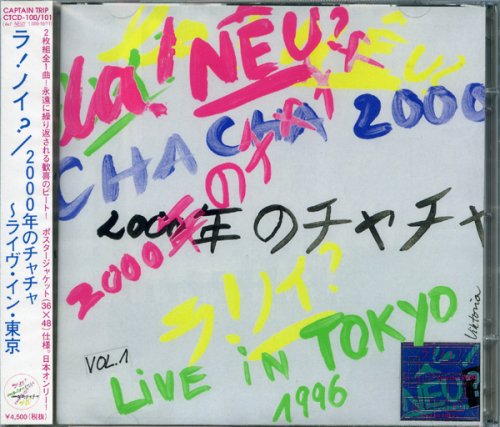 CAPTAIN TRIP
CTCD-100/101
ラ!ノイ?/
2000年のチャチャ
~ライヴ・イン・東京
2枚組全1曲―永遠に繰り返される歓喜のビート! ポスタージャケット(36×48)仕様。日本オンリー!
¥4,500(税抜)
la! NEU?
CHA CHA 2000
2000年のチャチャ
2000年のチャチャ
ラ!ノイ?
VOL.1
LiVE iN TOKYO
1996
Viktoria
la!
NEU?